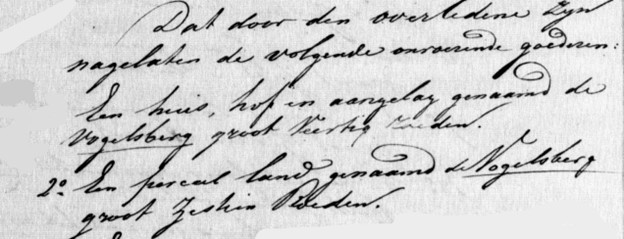 Dat door den overledene Zyn
nagelaten de volgende onroerende goederen:
Een huis, hof en aangelag genaamd de
Vogelsberg groot Veertig roeden.
2º Een perceel land genaamd de Vogelsberg
groot Zestien Roeden.